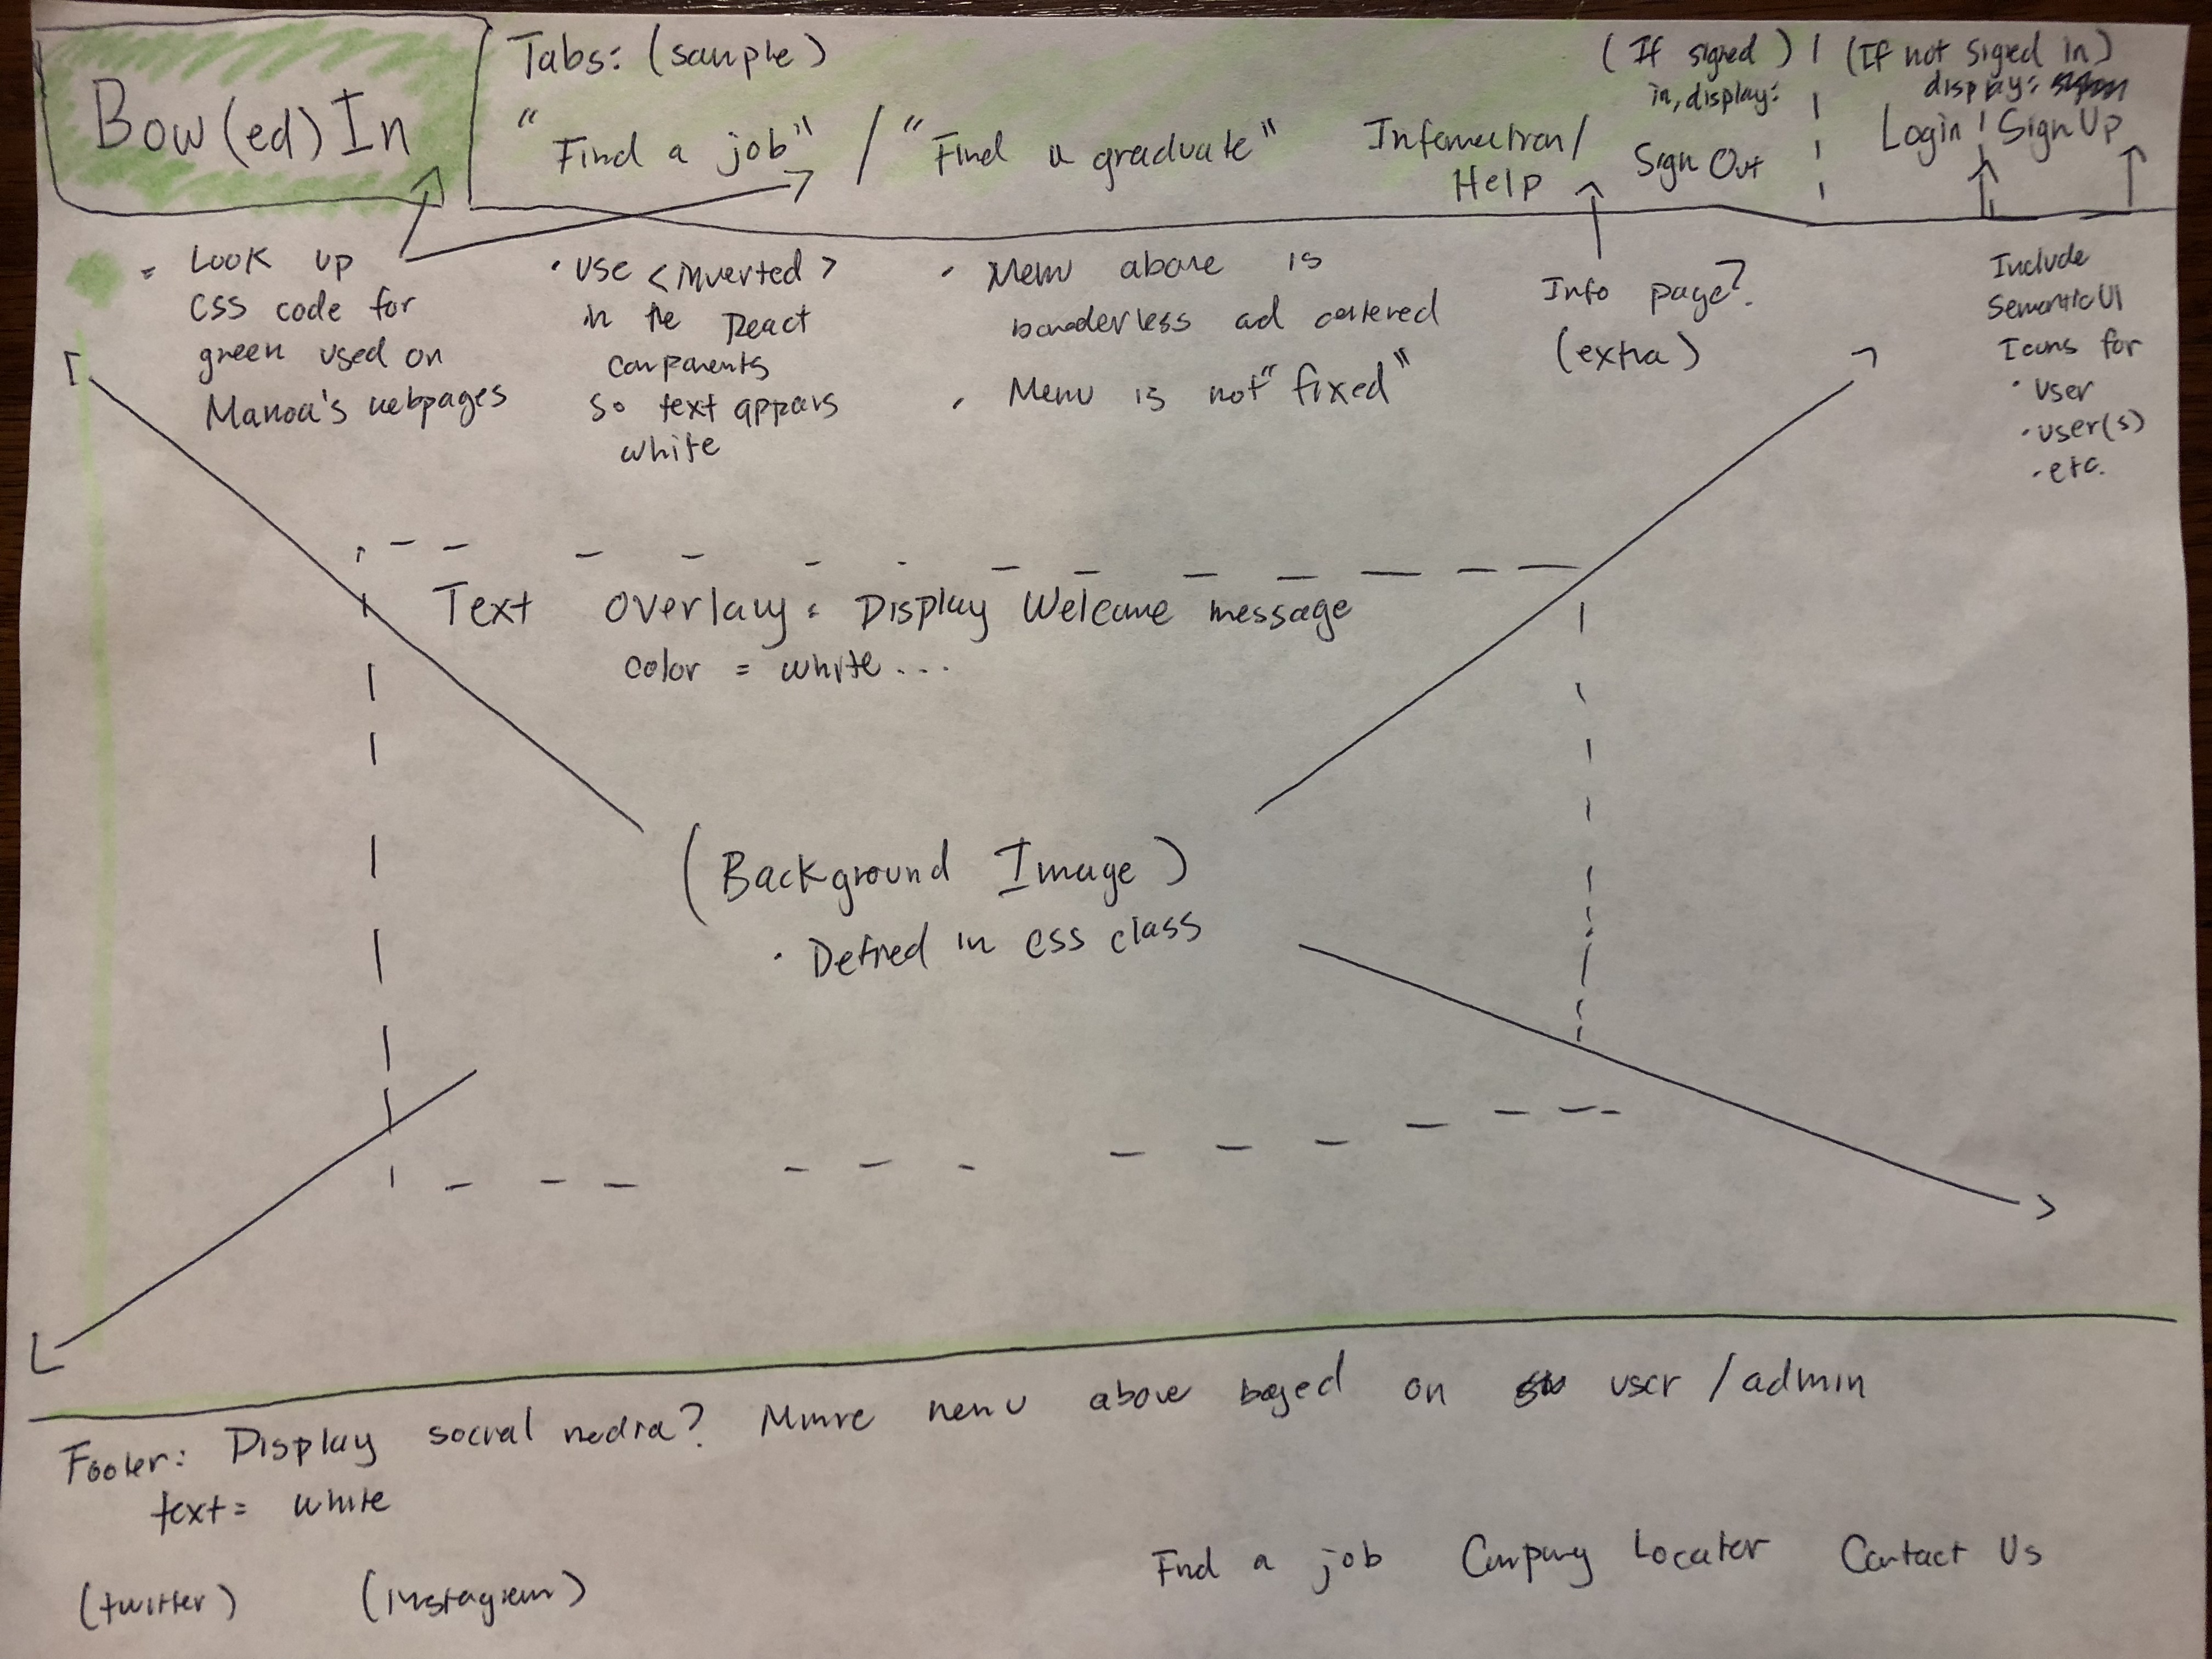 Bow(ed) In
Tabs: (sample)
"Find a job" / "Find a graduate"
Information/
Help
(If signed)
in, display:
Sign Out
(If not siged in)
display:
Login | Sign Up
= Look up
CSS code for
green used on
Manoa's webpages
• use <inverted>
in the React
components
so text appears
white
• Menu above is
borderless and centered
• Menu is not "fixed"
Info page?
(extra)
Include
Semantic UI
Icons for
• user
• user(s)
• etc.
Text Overlay: Display Welcome message
color = white...
(Background Image)
• Defined in css class
Footer: Display social media? Mimic menu above based on user/admin
text = white
(twitter) (instagram)
Find a job Company Locater Contact Us